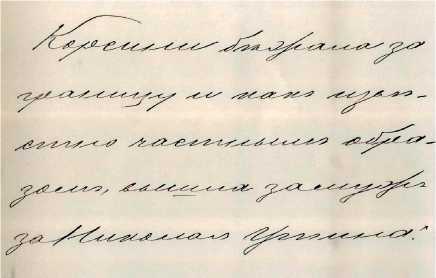 Корсини бѣжала за
границу и какъ извѣ-
стно частнымъ обра-
зомъ, вышла замужъ
за Николая Утина."